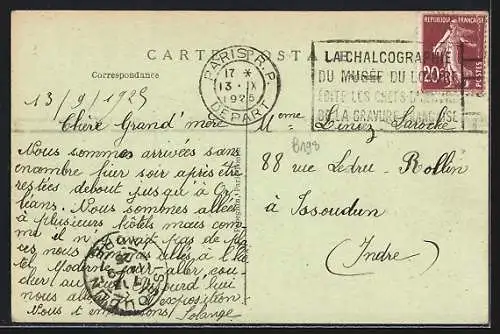 CARTE POSTALE
Correspondance
PARIS R.P.
17 *
13 · IX
1925
DÉPART
LA CHALCOGRAPHIE
DU MUSÉE DU LOUVRE
ÉDITE LES CHEFS
DE LA GRAVURE FRANÇAISE
RÉPUBLIQUE FRANÇAISE
20
POSTES
13/9/1925
Chère Grand'mère
Nous sommes arrivées sans
encombre hier soir après être
restées debout jusqu'à Or-
léans. Nous sommes allées
à plusieurs hôtels mais com-
me il n'y avait pas de pla-
ces nous allés à l'hô-
tel Moderne pour aller cou-
cher aujourd'hui
nous allons Exposition.
Nous t'embrassons Solange
ISSOUDUN
Mme Linez Laroche
88 rue Ledru-Rollin
à Issoudun
(Indre)